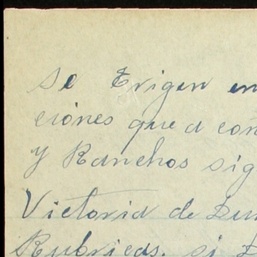 Se Erigen en
ciones que a con
y Ranchos sig
Victoria de Dur
Rubricas. si